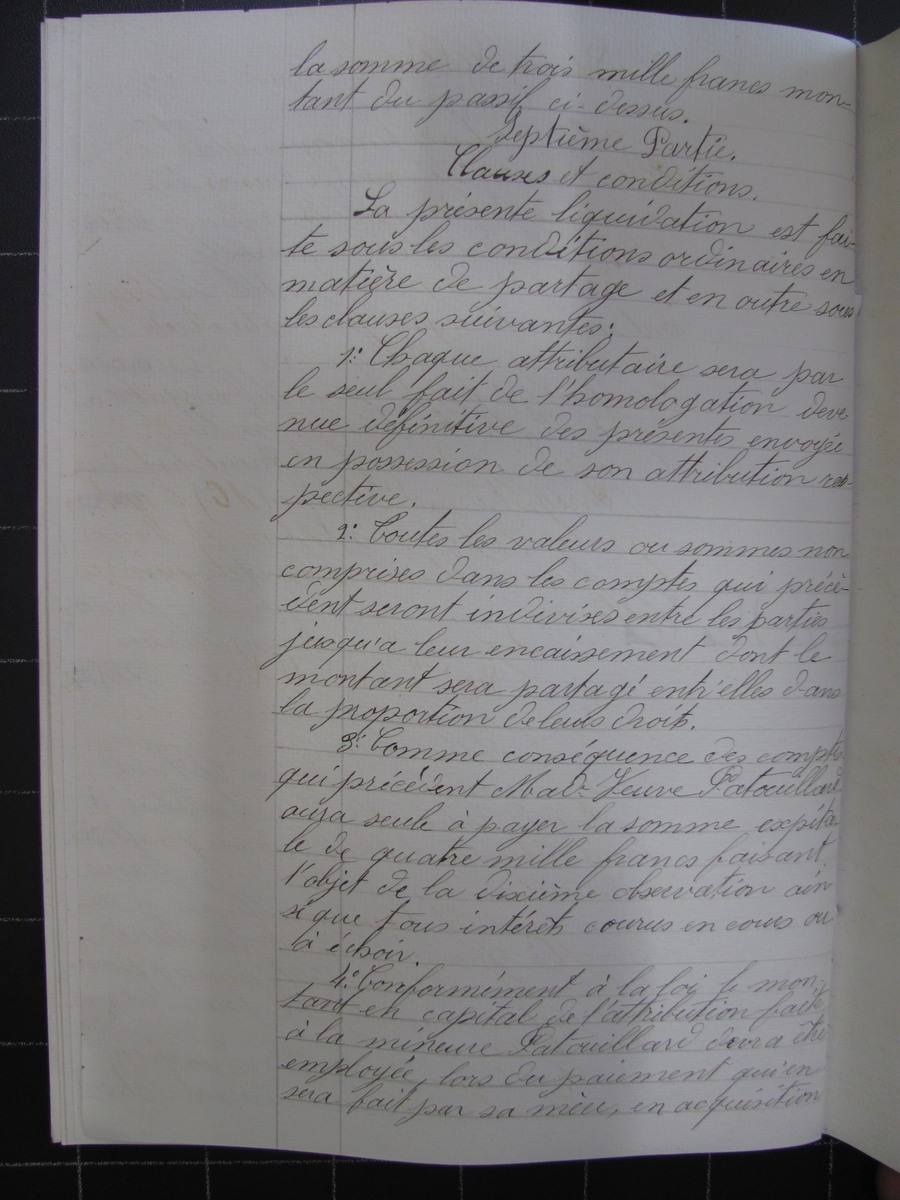 la somme de trois mille francs mon-
tant du passif ci-dessus.
Septième Partie.
Clauses et conditions.
La présente liquidation est fai-
te sous les conditions ordinaires en
matière de partage et en outre sous
les clauses suivantes:
1.° Chaque attributaire sera par
le seul fait de l'homologation deve
nue définitive des présentes envoyée
en possession de son attribution res-
pective.
2.° Toutes les valeurs ou sommes non
comprises dans les comptes qui précè-
dent seront indivises entre les parties
jusqu'à leur encaissement dont le
montant sera partagé entr'elles dans
la proportion de leurs droits.
3.° Comme conséquence des comptes
qui précèdent Mad.e Veuve Patouillard
aura seule à payer la somme capita
le de quatre mille francs faisant
l'objet de la dixième observation ain
si que tous intérêts courus en cours ou
à échoir.
4.° Conformément à la loi le mon-
tant en capital de l'attribution faite
à la mineure Patouillard devra être
employée, lors du paiement qui en
sera fait par sa mère, en acquisition